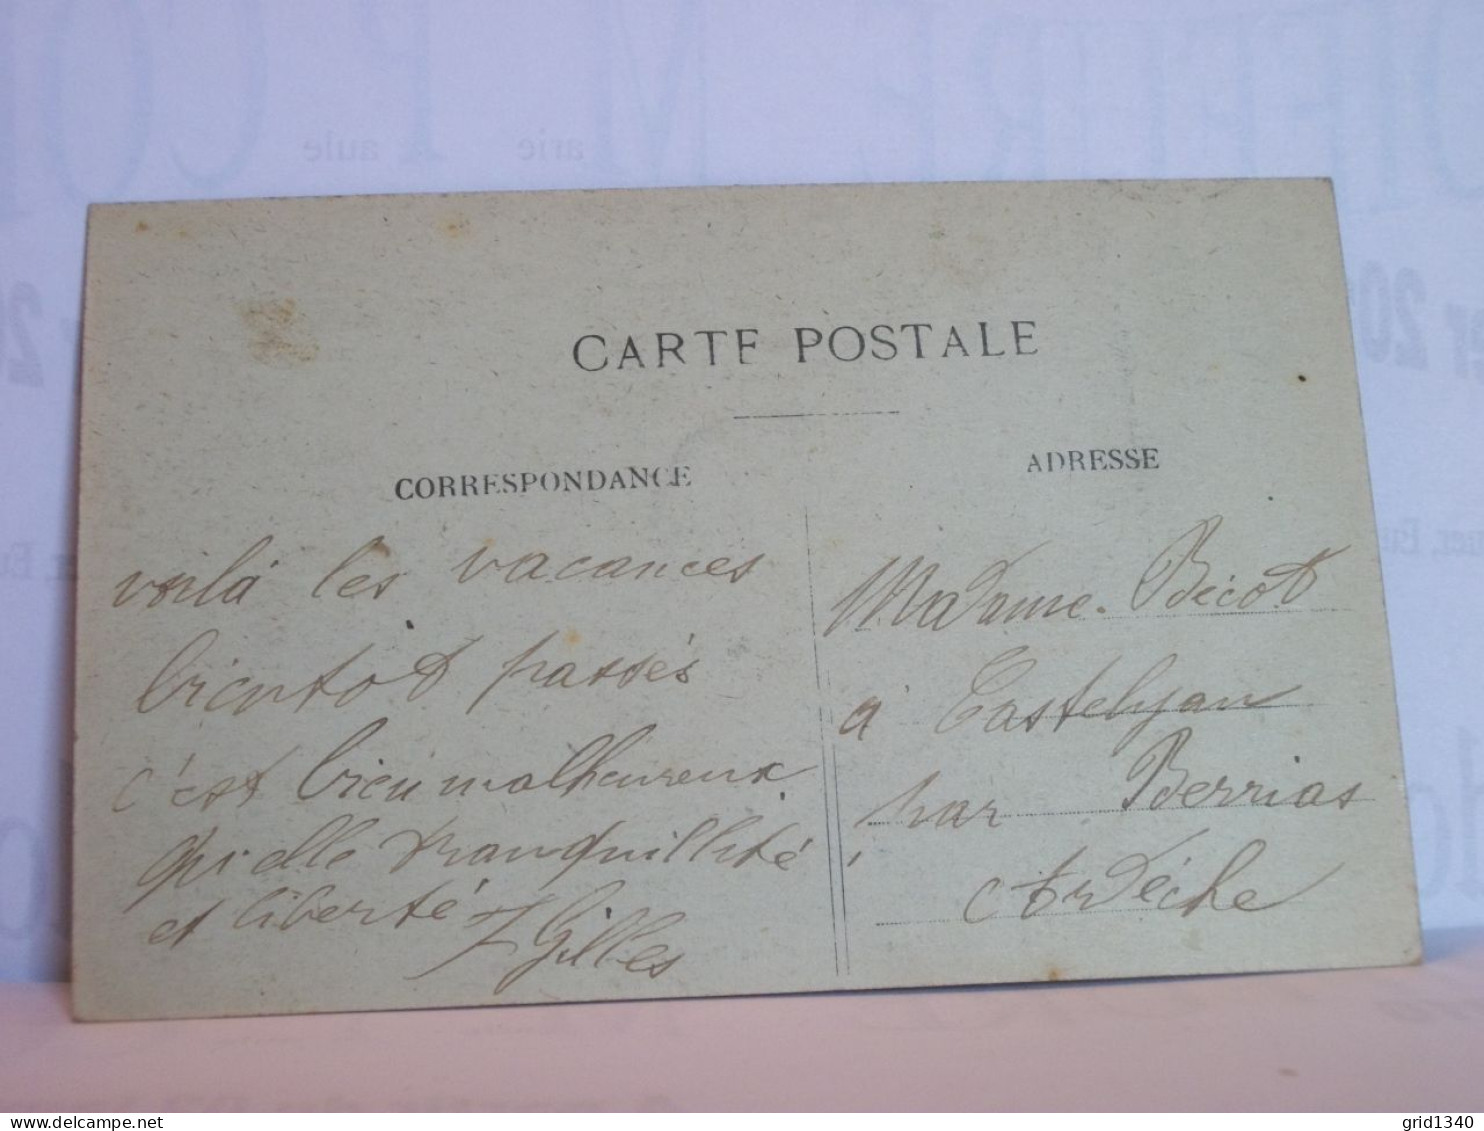 CARTE POSTALE
CORRESPONDANCE
voilà les vacances
bientot passés
c'est bien malheureux
qu'elle tranquillité
et liberté
Gilles
ADRESSE
Madame Bécot
à Castelyau
par Berrias
Ardéche
arie
aule
grid1340